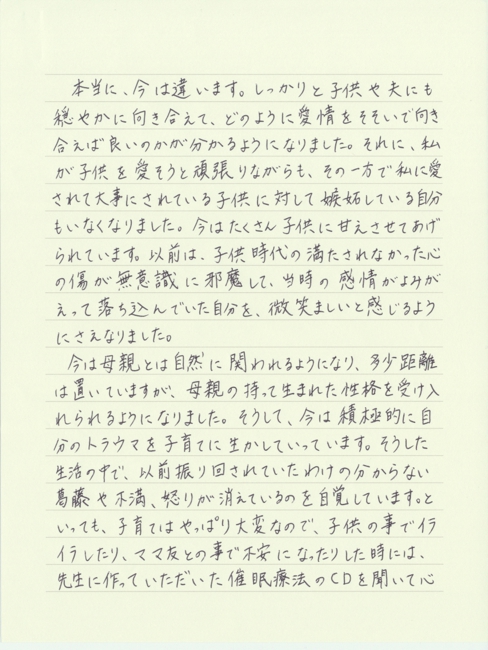 本当に、今は違います。しっかりと子供や夫にも
穏やかに向き合えて、どのように愛情をそそいで向き
合えば良いのかが分かるようになりました。それに、私
が子供を愛そうと頑張りながらも、その一方で私に愛
されて大事にされている子供に対して嫉妬している自分
もいなくなりました。今はたくさん子供に甘えさせてあげ
られています。以前は、子供時代の満たされなかった心
の傷が無意識に邪魔して、当時の感情がよみが
えって落ち込んでいた自分を、微笑ましいと感じるよう
にさえなりました。
今は母親とは自然に関われるようになり、多少距離
は置いていますが、母親の持って生まれた性格を受け入
れられるようになりました。そうして、今は積極的に自
分のトラウマを子育てに生かしていっています。そうした
生活の中で、以前振り回されていたわけの分からない
葛藤や不満、怒りが消えているのを自覚しています。と
いっても、子育てはやっぱり大変なので、子供の事でイラ
イラしたり、ママ友との事で不安になったりした時には、
先生に作っていただいた催眠療法のCDを聞いて心